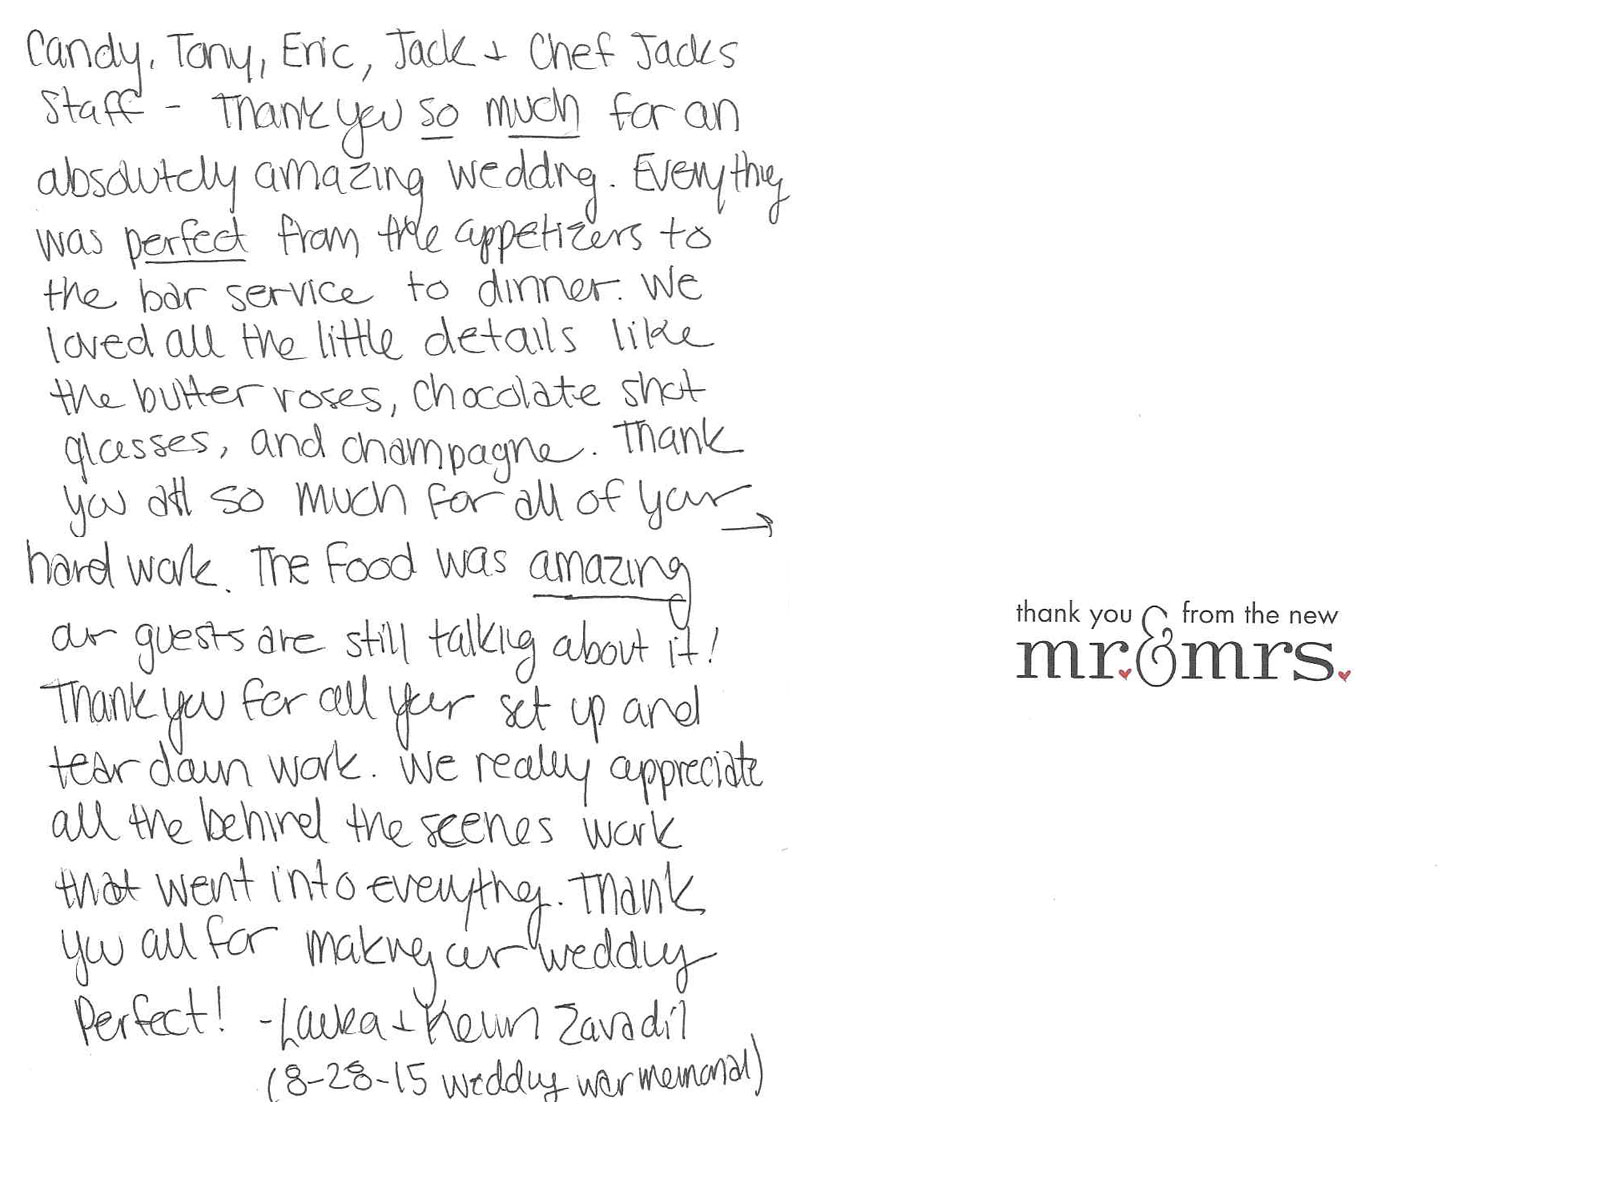 Candy, Tony, Eric, Jack + Chef Jacks
Staff - Thank you so much for an
absolutely amazing wedding. Everything
was perfect from the appetizers to
the bar service to dinner. We
loved all the little details like
the butter roses, chocolate shot
glasses, and champagne. Thank
you all so much for all of your →
hard work. The food was amazing
our guests are still talking about it!
Thank you for all your set up and
tear down work. We really appreciate
all the behind the scenes work
that went into everything. Thank
you all for making our wedding
Perfect! - Laura + Kevin Zavadil
(8-28-15 wedding war memorial)
thank you & from the new
mr. & mrs.